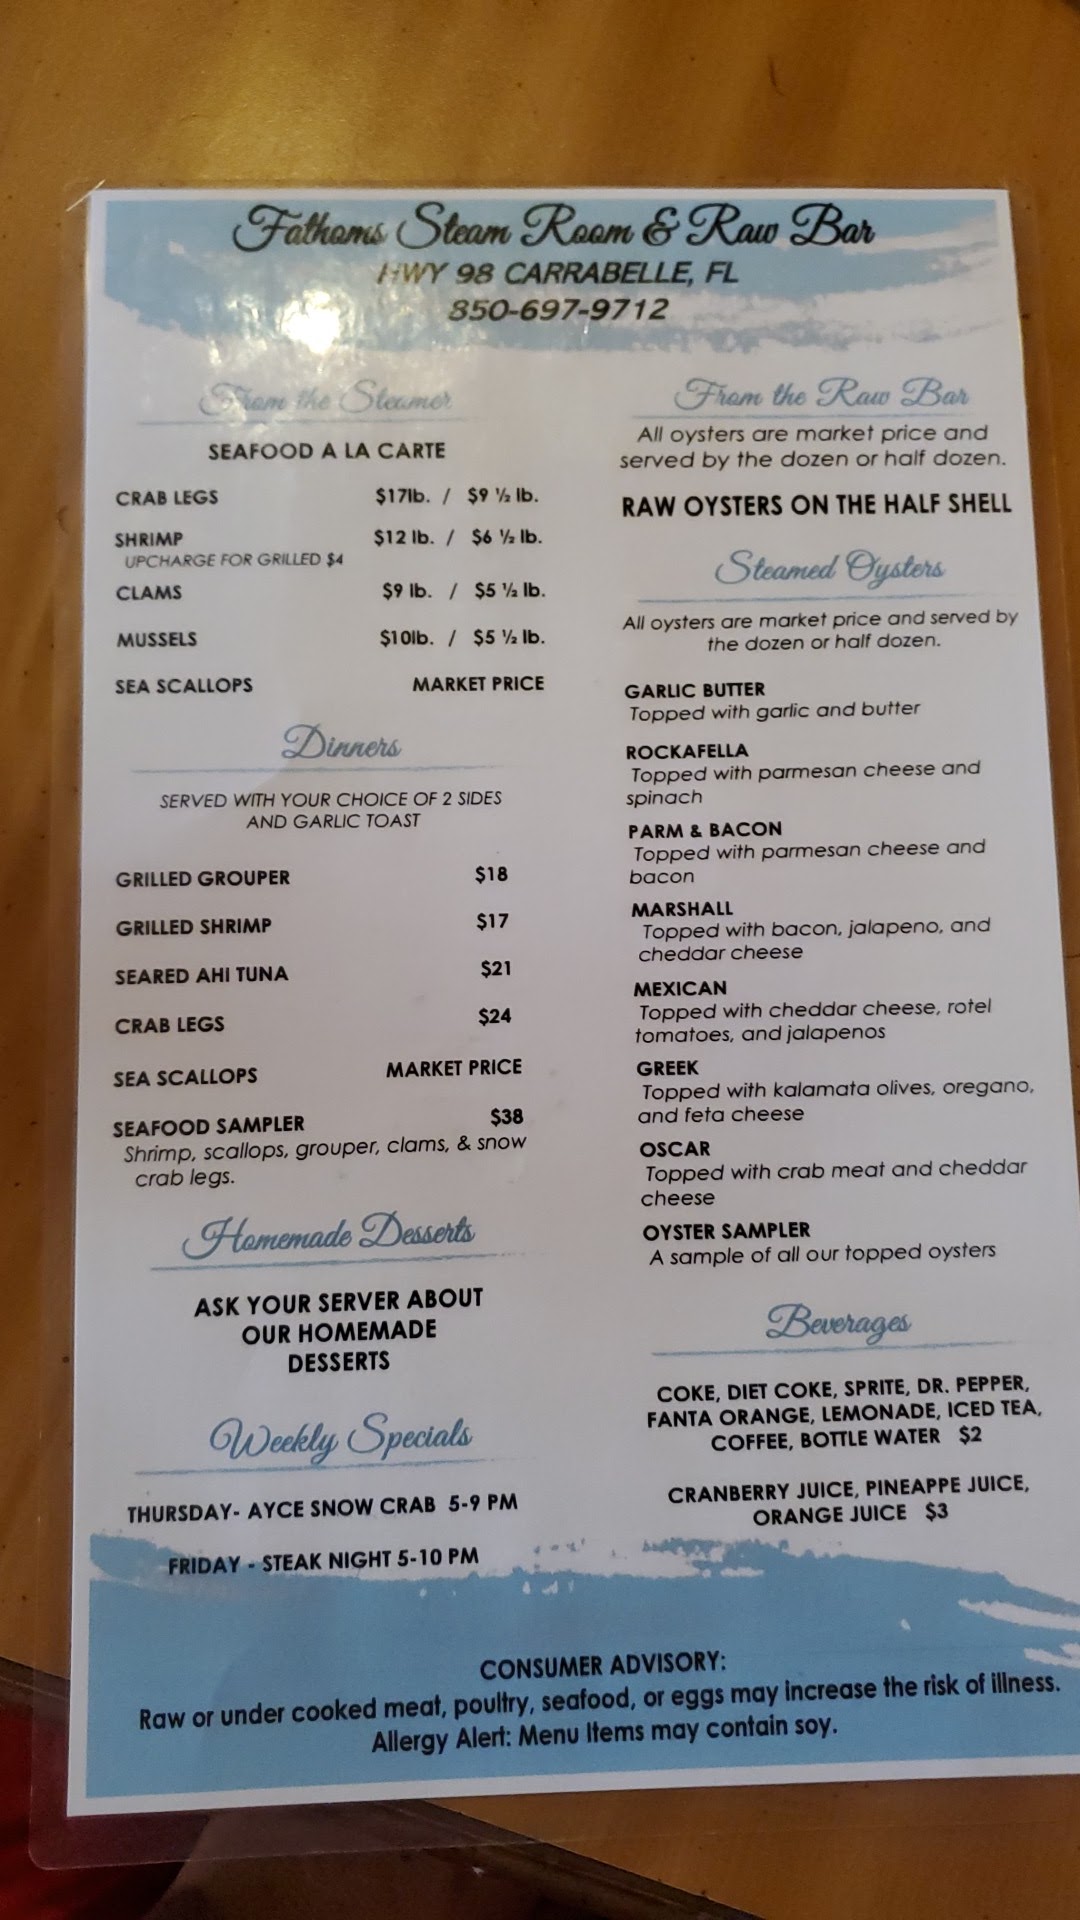 Fathoms Steam Room & Raw Bar
HWY 98 CARRABELLE, FL
850-697-9712
From the Steamer
SEAFOOD A LA CARTE
CRAB LEGS $17lb. / $9 ½ lb.
SHRIMP $12 lb. / $6 ½ lb.
UPCHARGE FOR GRILLED $4
CLAMS $9 lb. / $5 ½ lb.
MUSSELS $10lb. / $5 ½ lb.
SEA SCALLOPS MARKET PRICE
Dinners
SERVED WITH YOUR CHOICE OF 2 SIDES
AND GARLIC TOAST
GRILLED GROUPER $18
GRILLED SHRIMP $17
SEARED AHI TUNA $21
CRAB LEGS $24
SEA SCALLOPS MARKET PRICE
SEAFOOD SAMPLER $38
Shrimp, scallops, grouper, clams, & snow
crab legs.
Homemade Desserts
ASK YOUR SERVER ABOUT
OUR HOMEMADE
DESSERTS
Weekly Specials
THURSDAY- AYCE SNOW CRAB 5-9 PM
FRIDAY - STEAK NIGHT 5-10 PM
From the Raw Bar
All oysters are market price and
served by the dozen or half dozen.
RAW OYSTERS ON THE HALF SHELL
Steamed Oysters
All oysters are market price and served by
the dozen or half dozen.
GARLIC BUTTER
Topped with garlic and butter
ROCKAFELLA
Topped with parmesan cheese and
spinach
PARM & BACON
Topped with parmesan cheese and
bacon
MARSHALL
Topped with bacon, jalapeno, and
cheddar cheese
MEXICAN
Topped with cheddar cheese, rotel
tomatoes, and jalapenos
GREEK
Topped with kalamata olives, oregano,
and feta cheese
OSCAR
Topped with crab meat and cheddar
cheese
OYSTER SAMPLER
A sample of all our topped oysters
Beverages
COKE, DIET COKE, SPRITE, DR. PEPPER,
FANTA ORANGE, LEMONADE, ICED TEA,
COFFEE, BOTTLE WATER $2
CRANBERRY JUICE, PINEAPPE JUICE,
ORANGE JUICE $3
CONSUMER ADVISORY:
Raw or under cooked meat, poultry, seafood, or eggs may increase the risk of illness.
Allergy Alert: Menu Items may contain soy.